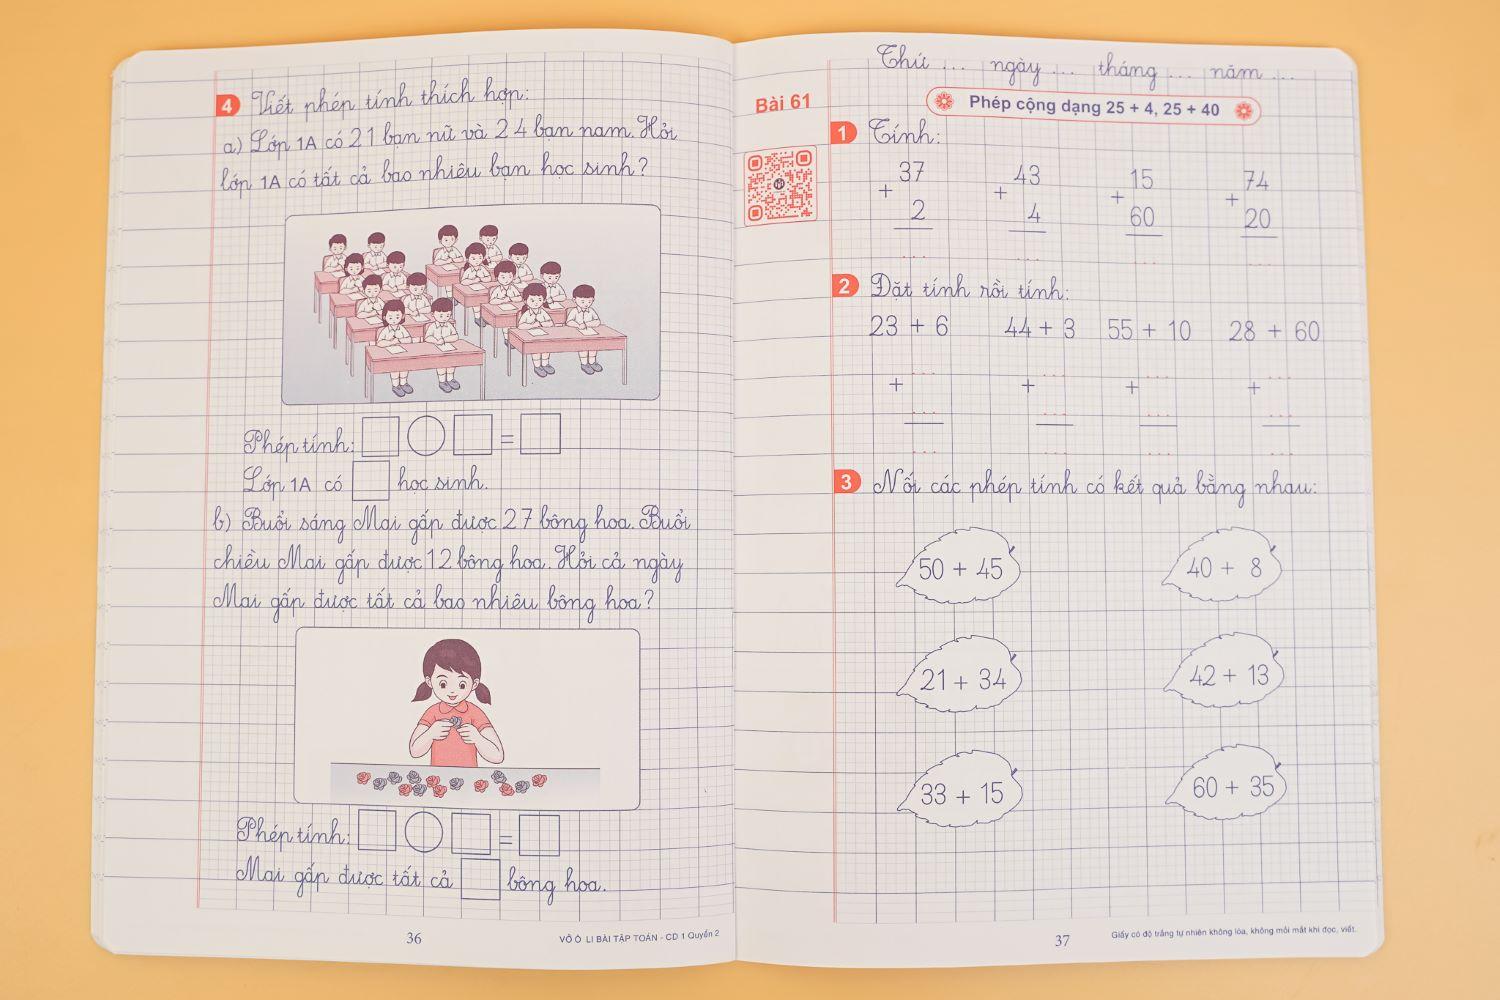 4 Viết phép tính thích hợp:
a) Lớp 1A có 21 bạn nữ và 24 bạn nam. Hỏi
lớp 1A có tất cả bao nhiêu bạn học sinh?
Phép tính: =
Lớp 1A có học sinh.
b) Buổi sáng Mai gấp được 27 bông hoa. Buổi
chiều Mai gấp được 12 bông hoa. Hỏi cả ngày
Mai gấp được tất cả bao nhiêu bông hoa?
Phép tính: =
Mai gấp được tất cả bông hoa.
36
VỞ Ô LI BÀI TẬP TOÁN - CD 1 Quyển 2
Thứ ... ngày ... tháng ... năm ...
Bài 61
Phép cộng dạng 25 + 4, 25 + 40
1 Tính:
37 43 15 74
+ + + +
2 4 60 20
... ... ... ...
2 Đặt tính rồi tính:
23 + 6 44 + 3 55 + 10 28 + 60
... ... ... ...
+ + + +
... ... ... ...
... ... ... ...
3 Nối các phép tính có kết quả bằng nhau:
50 + 45 40 + 8
21 + 34 42 + 13
33 + 15 60 + 35
37
Giấy có độ trắng tự nhiên không lóa, không mỏi mắt khi đọc, viết.